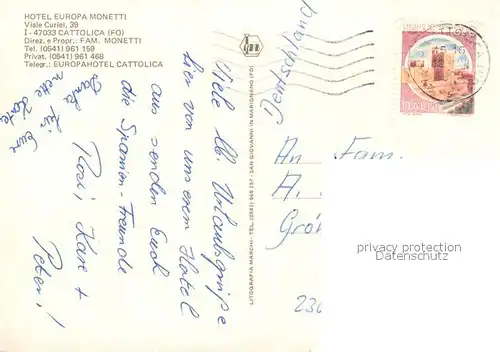 HOTEL EUROPA MONETTI
Viale Curiel, 39
I - 47033 CATTOLICA (FO)
Direz. e Propr.: FAM. MONETTI
Tel. (0541) 961 159
Privat. (0541) 961 468
Telegr.: EUROPAHOTEL CATTOLICA
Viele lb. Urlaubsgrüße
hier von unserem Hotel
aus senden Euch
die Spanien-Freunde
Rosi, Karl +
Peter!
Danke für Eure
nette Karte
LITOGRAFIA MARCHI - TEL. (0541) 969 237 - SAN GIOVANNI IN MARIGNANO (FO)
Deutschland
An Fam.
A.
Grö
230
privacy protection
Datenschutz